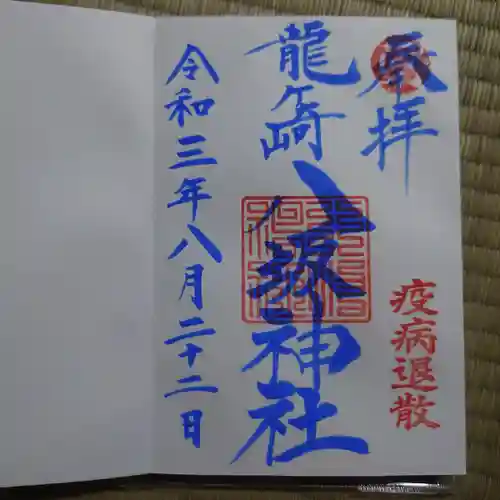 奉拝
疫病退散
龍ヶ崎
八坂神社
令和三年八月二十二日